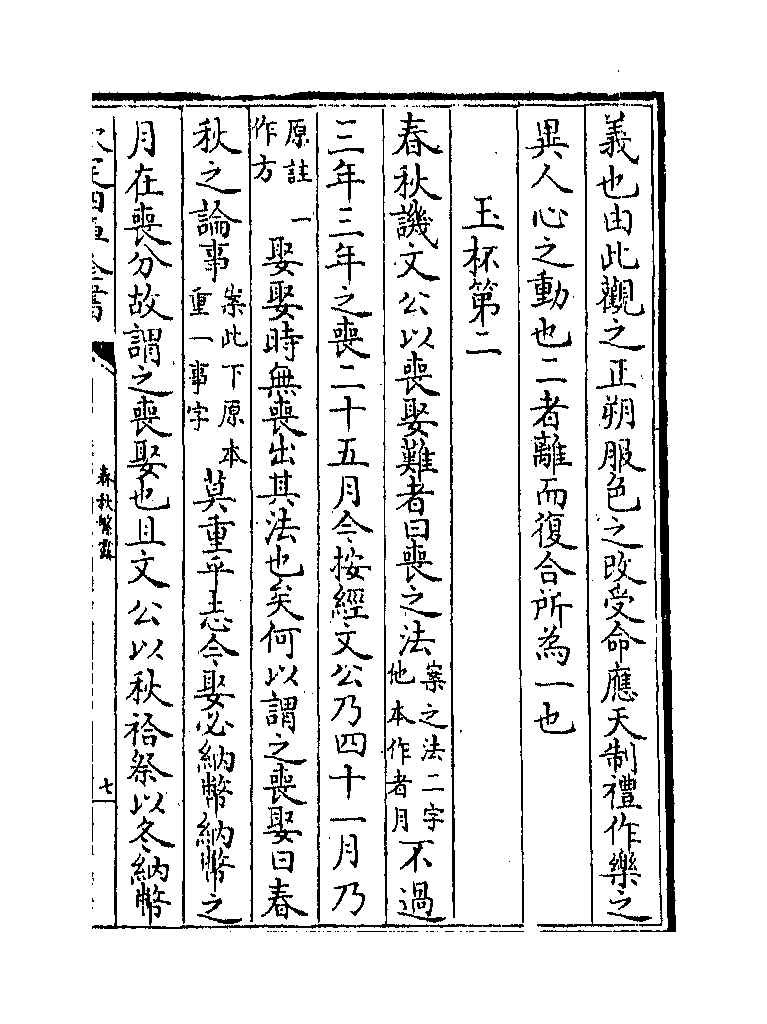 義也由此觀之正朔服色之改受命應天制禮作樂之
異人心之動也二者離而復合所為一也
玉杯第二
春秋譏文公以喪娶難者曰喪之法案之法二字他本作者月不過
三年三年之喪二十五月今按經文公乃四十一月乃
原註一作方娶娶時無喪出其法也矣何以謂之喪娶曰春
秋之論事案此下原本重一事字莫重乎志今娶必納幣納幣之
月在喪分故謂之喪娶也且文公以秋祫祭以冬納幣
春秋繁露
七